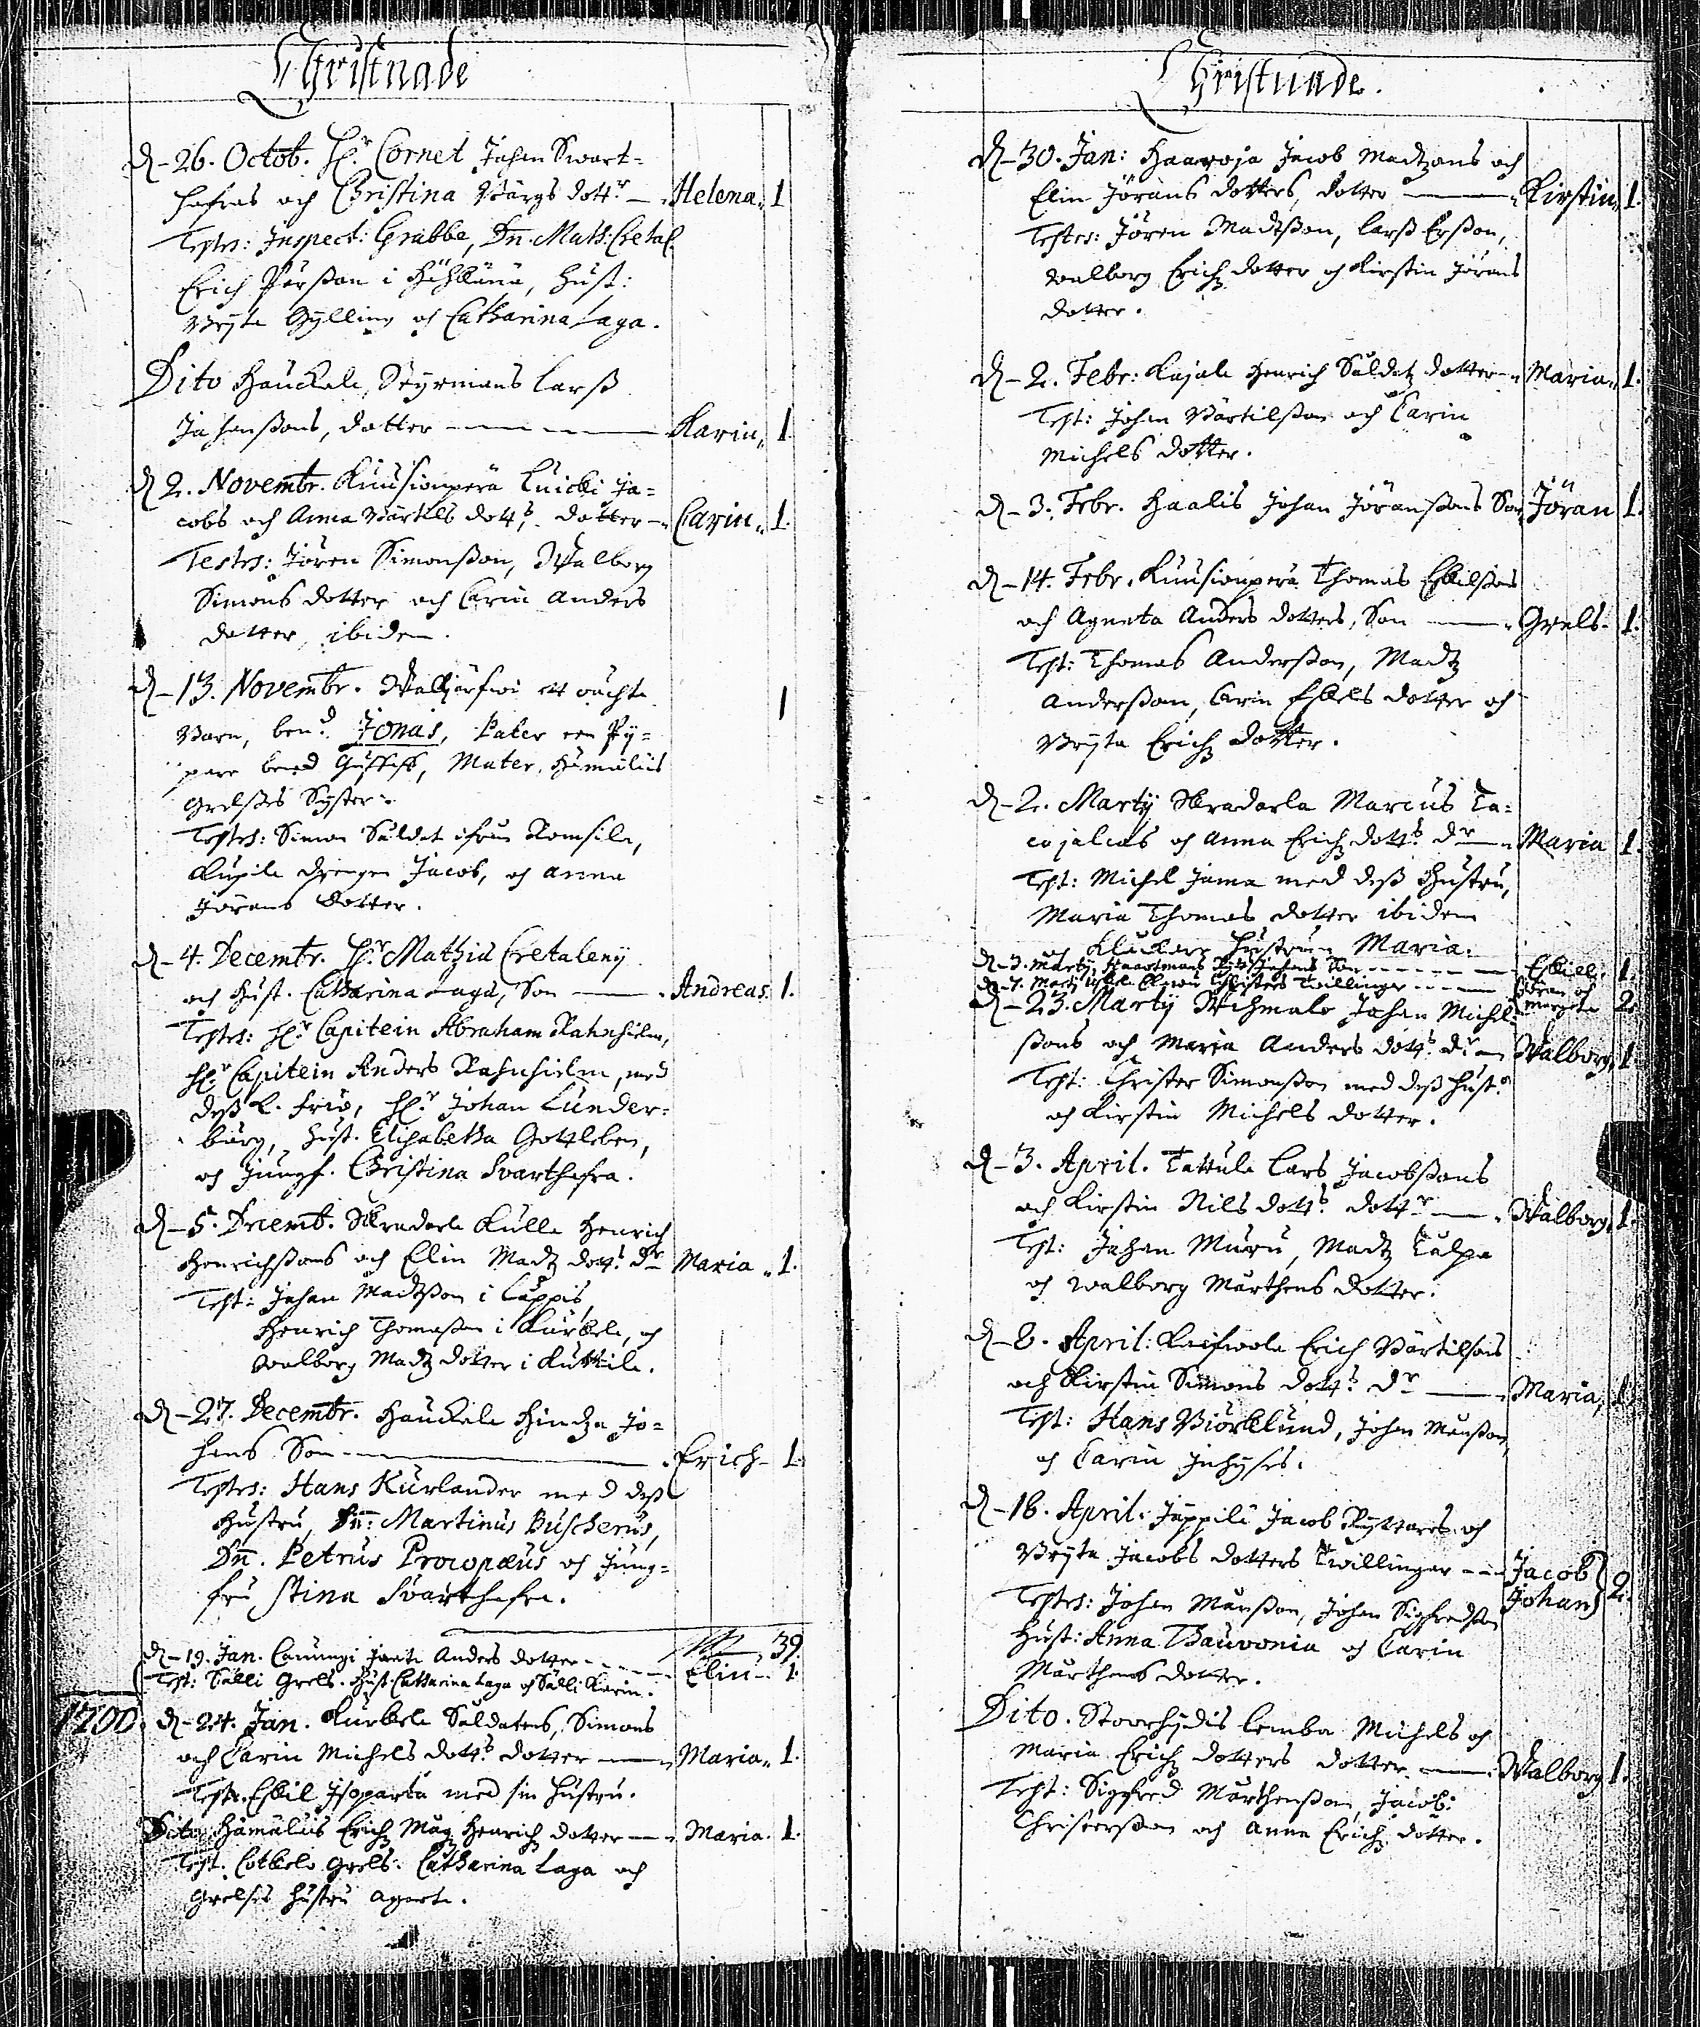 Christnade
D. 26. Octob. Hr. Cornet Johan Swart=
hafras och Christina Bärgs dottr — Helena. 1
Testes: Inspect: Grabbe, Dn. Math: Cretal.
Erich Pärsson i Hust:
Bryta Gylling och Catharina Laga.
Dito Hauckala, Styrmans Larß
Johanssons, dotter — Karin. 1.
D. 2. Novembr. Kuusionperä Luicki Ja=
cobs och Anna Bärtils dotts. dotter — Carin. 1.
Testes: Jören Simonsson, Walborg
Simons dotter och Carin Anders
dotter, ibidem.
D. 13. Novembr. Walkjärfwi ett oächta 1
Barn, bend. Jonas, Pater een Py=
pare bend Gustaff, Mater, Hämäläis
Grelsses Syster.
Testes: Simon Suldat ifrån
drengen Jacob, och Anna
Jörans dotter.
D. 4. Decembr. Hr. Mathiæ Cretaleny
och Hust. Catharina Laga, Son — Andreas. 1.
Testes: Hr. Capitein Abraham Rahnhielm,
Hr. Capitein Anders Rahnhielm, med
deß k. fru, Hr. Johan Lunder=
burg, Hust. Elisabetha Gottleben,
och Jungf. Christina Svarthafra.
D. 5. Decemb. Kulla Henrich
Henrichssons och Elin Madz dotts. dr Maria. 1.
Test: Johan Madtsson i Lappis,
Henrich Thomasson i Kurkela, och
Walborg Madz dotter i Kuttila.
D. 27. Decembr. Hauckala Hindza Jo=
hans Son — Erich 1.
Testes: Hans Kurlander med deß
Hustru, Dn: Martinus Buscherus,
Dn. Petrus Procopæus och Jung=
fru Stina Svarthafra.
39.
D. 19. Jan. Anders dotter — Elin 1.
Test: Sälli Grels. Hust. Catharina Laga och Sälli Karin.
1700. D. 24. Jan. Kurkela Soldatens, Simons
och Carin Michels dotts. dotter — Maria. 1.
Test. Eskil Isoparta med sin hustru.
Dito Hämäläis Erich Mag: Henrichz dotter — Maria. 1.
Test. Grels. Catharina Laga och
Grelses hustru Agneta.
Christnade.
D. 30. Jan: Haaroja Jacob Madzons och
Elin Jörans dotters, dotter — Kirstin. 1.
Testes: Jören Madtsson, Larß Ersson,
Walborg Erichz dotter och Kirstin Jörans
dotter.
D. 2. Febr: Kajala Henrich Suldatz dotter — Maria. 1.
Test: Johan Bärtilsson och Carin
Michels dotter.
D. 3. Febr. Haalis Johan Jöranssons Son Jöran 1.
D. 14. Febr. Kuusionperä Thomas Eskilssons
och Agneta Anders dotters, Son — Grels. 1.
Test: Thomas Andersson, Madz
Andersson, Carin Eskels dotter och
Bryta Erichz dotter.
D. 2. Martij Marcus Ta=
och Anna Erichz dotts. dr — Maria 1.
Test: Michel Jama med deß Hustru,
Maria Thomas dotter ibidem
och Klåckarz Hustrun Maria.
D. 3. Martij Johans Son — Eskill. 1.
D. 7. Martij Christers Twillingar — Jöran och
Margeta 2.
D. 23. Martij Johan Michel=
ssons och Maria Anders dotts. dr — Walborg. 1.
Test: Christer Simonsson med deß hust.
och Kirstin Michels dotter.
D. 3. April. Tattula Lars Jacobssons
och Kirstin Nils dotts. dottr — Walborg. 1.
Test: Johan Muru, Madz Talpa
och Walborg Mårthens dotter.
D. 8. April: Erich Bärtilssons
och Kirstin Simons dotts. dr — Maria, 1.
Test: Hans Biörklund, Johan Månsson,
och Carin
D. 16. April: Jäppilä Jacob Ryttares och
Bryta Jacobs dotters Twillingar — Jacob
Johan 2.
Testes: Johan Månsson, Johan Sigfredsson
Hust: Anna Thauvonia och Carin
Mårthens dotter.
Dito. Lemba Michels och
Maria Erichz dotters dotter. — Walborg 1.
Test: Sigfred Mårthensson, Jacob:
Christersson och Anna Erichz dotter.